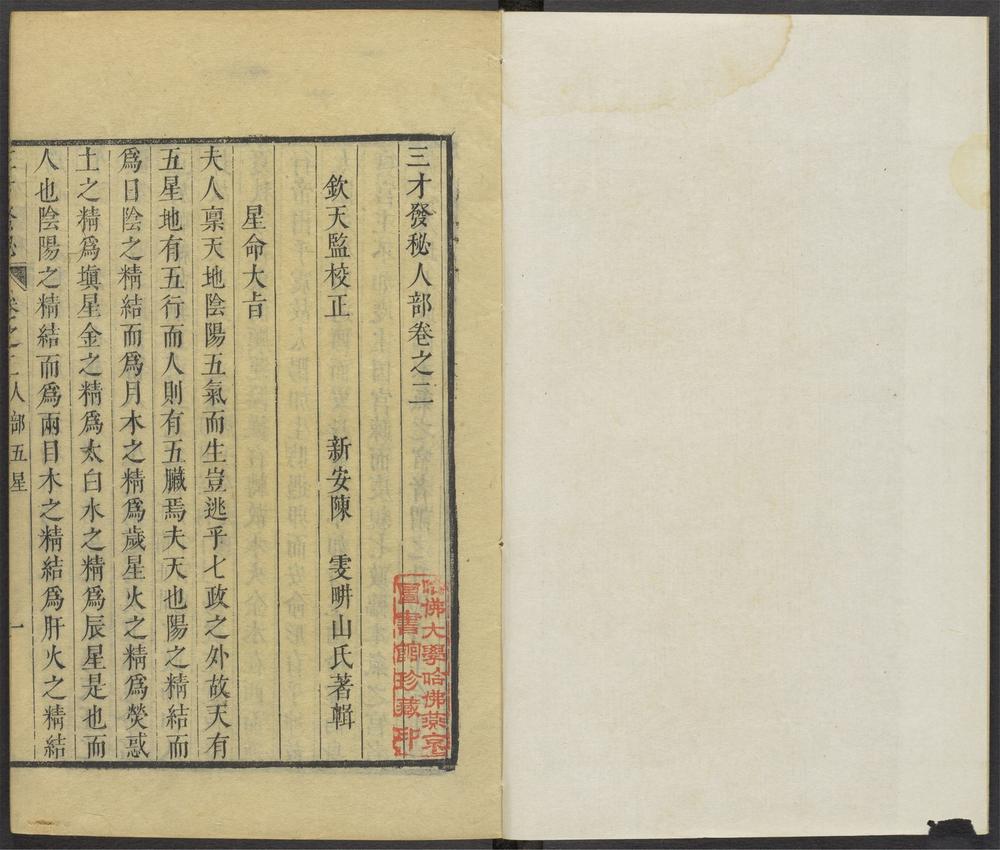 三才發秘人部卷之二
欽天監校正　新安陳　雯畊山氏著輯
星命大旨
夫人稟天地陰陽五氣而生豈逃乎七政之外故天有
五星地有五行而人則有五臟焉夫天也陽之精結而
爲日陰之精結而爲月木之精爲歲星火之精爲熒惑
土之精爲塡星金之精爲太白水之精爲辰星是也而
人也陰陽之精結而爲兩目木之精結爲肝火之精結
卷之二人部五星　一
哈佛大學哈佛燕京
圖書館珍藏印